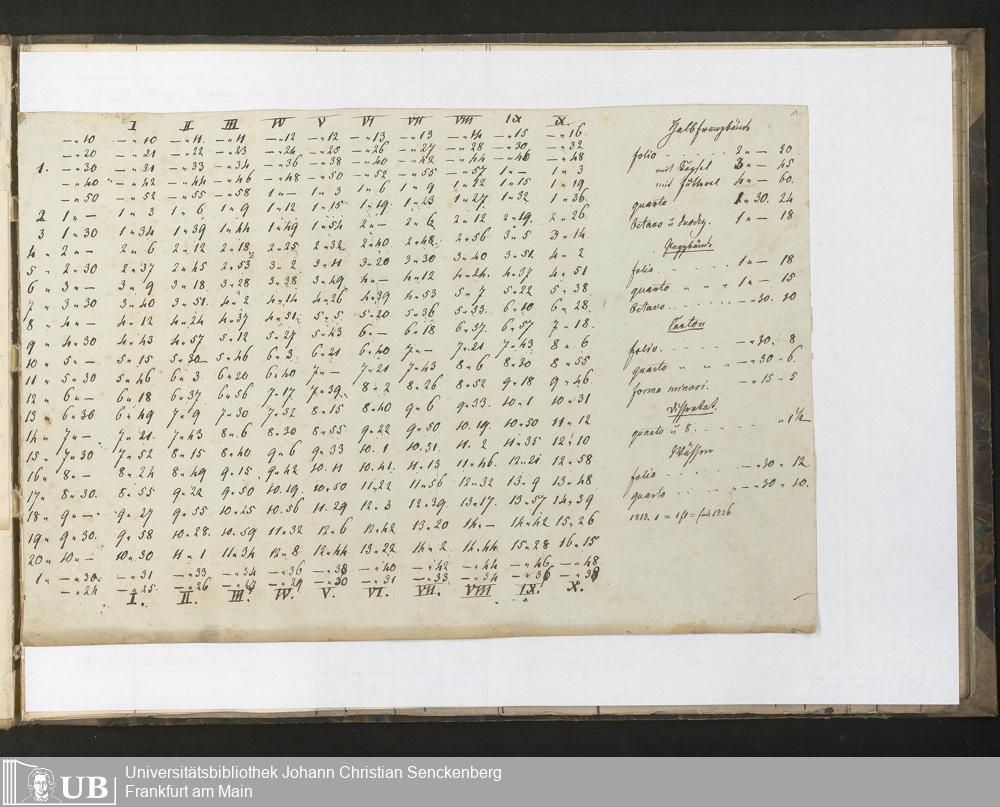 I II III IV V VI VII VIII IX X.
—"10 —"10 —"11. —"11 —"12 —"12 —"13. —"13 —"14 —"15 —"16.
—"20 —"21 —"22 —"23 —"24 —"25 —"26 —"27 —"28 —"30. —"32
1. —"30 —"31 —"33 —"34 —"36 —"38 —"40 —"42 —"44 —"46 —"48
—"40 —"42 —"44 —"46 —"48 —"50 —"52 —"55 —"57 1"— 1"3
—"50 —"52 —"55 —"58 1"— 1"3 1"6 1"9 1"12 1"15 1"19
2 1"— 1"3 1"6 1"9 1"12 1"15 1"19. 1"23 1"27. 1"32 1"36.
3 1"30 1"34 1"39 1"44 1"49 1"54 2"— 2"6 2"12 2"19. 2"26
4" 2"— 2"6 2"12 2"18 2"25 2"32 2"40 2"48. 2"56 3"5 3"14
5" 2"30 2"37 2"45 2"53 3"2 3"11 3"20 3"30 3"40 3"51. 4"2
6" 3"— 3"9 3"18 3"28 3"38 3"49 4"— 4"12 4"24. 4"37 4"51
7" 3"30 3"40 3"51. 4"2 4"14 4"26 4"39 4"53 5"7 5"22 5"38
8" 4"— 4"12 4"24 4"37 4"51. 5"5. 5"20 5"36 5"33. 6"10 6"28.
9" 4"30 4"43 4"57 5"12 5"27 5"43 6"— 6"18 6"37. 6"57 7"18.
10" 5"— 5"15 5"30 5"46 6"3. 6"21 6"40 7"— 7"21 7"43 8"6
11" 5"30 5"46 6"3. 6"20 6"40 7"— 7"21 7"43 8"6 8"30 8"55
12" 6"— 6"18 6"37. 6"56 7"17 7"39. 8"2 8"26 8"52 9"18 9"46.
13" 6"30 6"49 7"9 7"30 7"52 8"15 8"40 9"6 9"33. 10"1 10"31
14" 7"— 7"21. 7"43 8"6 8"30 8"55 9"22 9"50 10"19. 10"50 11"12
15" 7"30 7"52 8"15 8"40 9"6 9"33 10"1 10"31. 11"2 11"35 12"10
16" 8"— 8"24 8"49 9"15 9"42 10"11 10"41. 11"13 11"46. 12"21 12"58
17" 8"30. 8"55 9"22 9"50 10"19. 10"50 11"22 11"56 12"32 13"9 13"48
18" 9"— 9"27 9"55 10"25 10"56 11"29 12"3 12"39. 13"17. 13"57 14"39
19" 9"30. 9"58 10"28. 10"59 11"32 12"6 12"42 13"20 14"— 14"42 15"26
20" 10"— 10"30 11"1 11"34 12"8 12"44 13"22 14"2 14"44. 15"28 16"15
1" —"30. —"31 —"33 —"34 —"36 —"38 —"40 —"42 —"44 —"46 —"48
—"24 —"25 —"26 —"27 —"29 —"30 —"31 —"33 —"34 —"36 —"38
I. II. III. IV. V. VI. VII. VIII IX. X.
1
Halbfranzbände
folio 2"— 30
mit Titel 3"— 45
mit Futteral 4"— 60.
quarto 1"30. 24
Octavo u duodez. 1"— 18
Pappbände
folio 1"— 18
quarto " " " 1"— 15
Octavo —"30. 10
Carton
folio —"30. 8
quarto " " " —"30"6.
forma minori. —"15"5
quarto u 8. "1½
folio —"30"12
quarto —"30"10.
1813.
UB Universitätsbibliothek Johann Christian Senckenberg
Frankfurt am Main